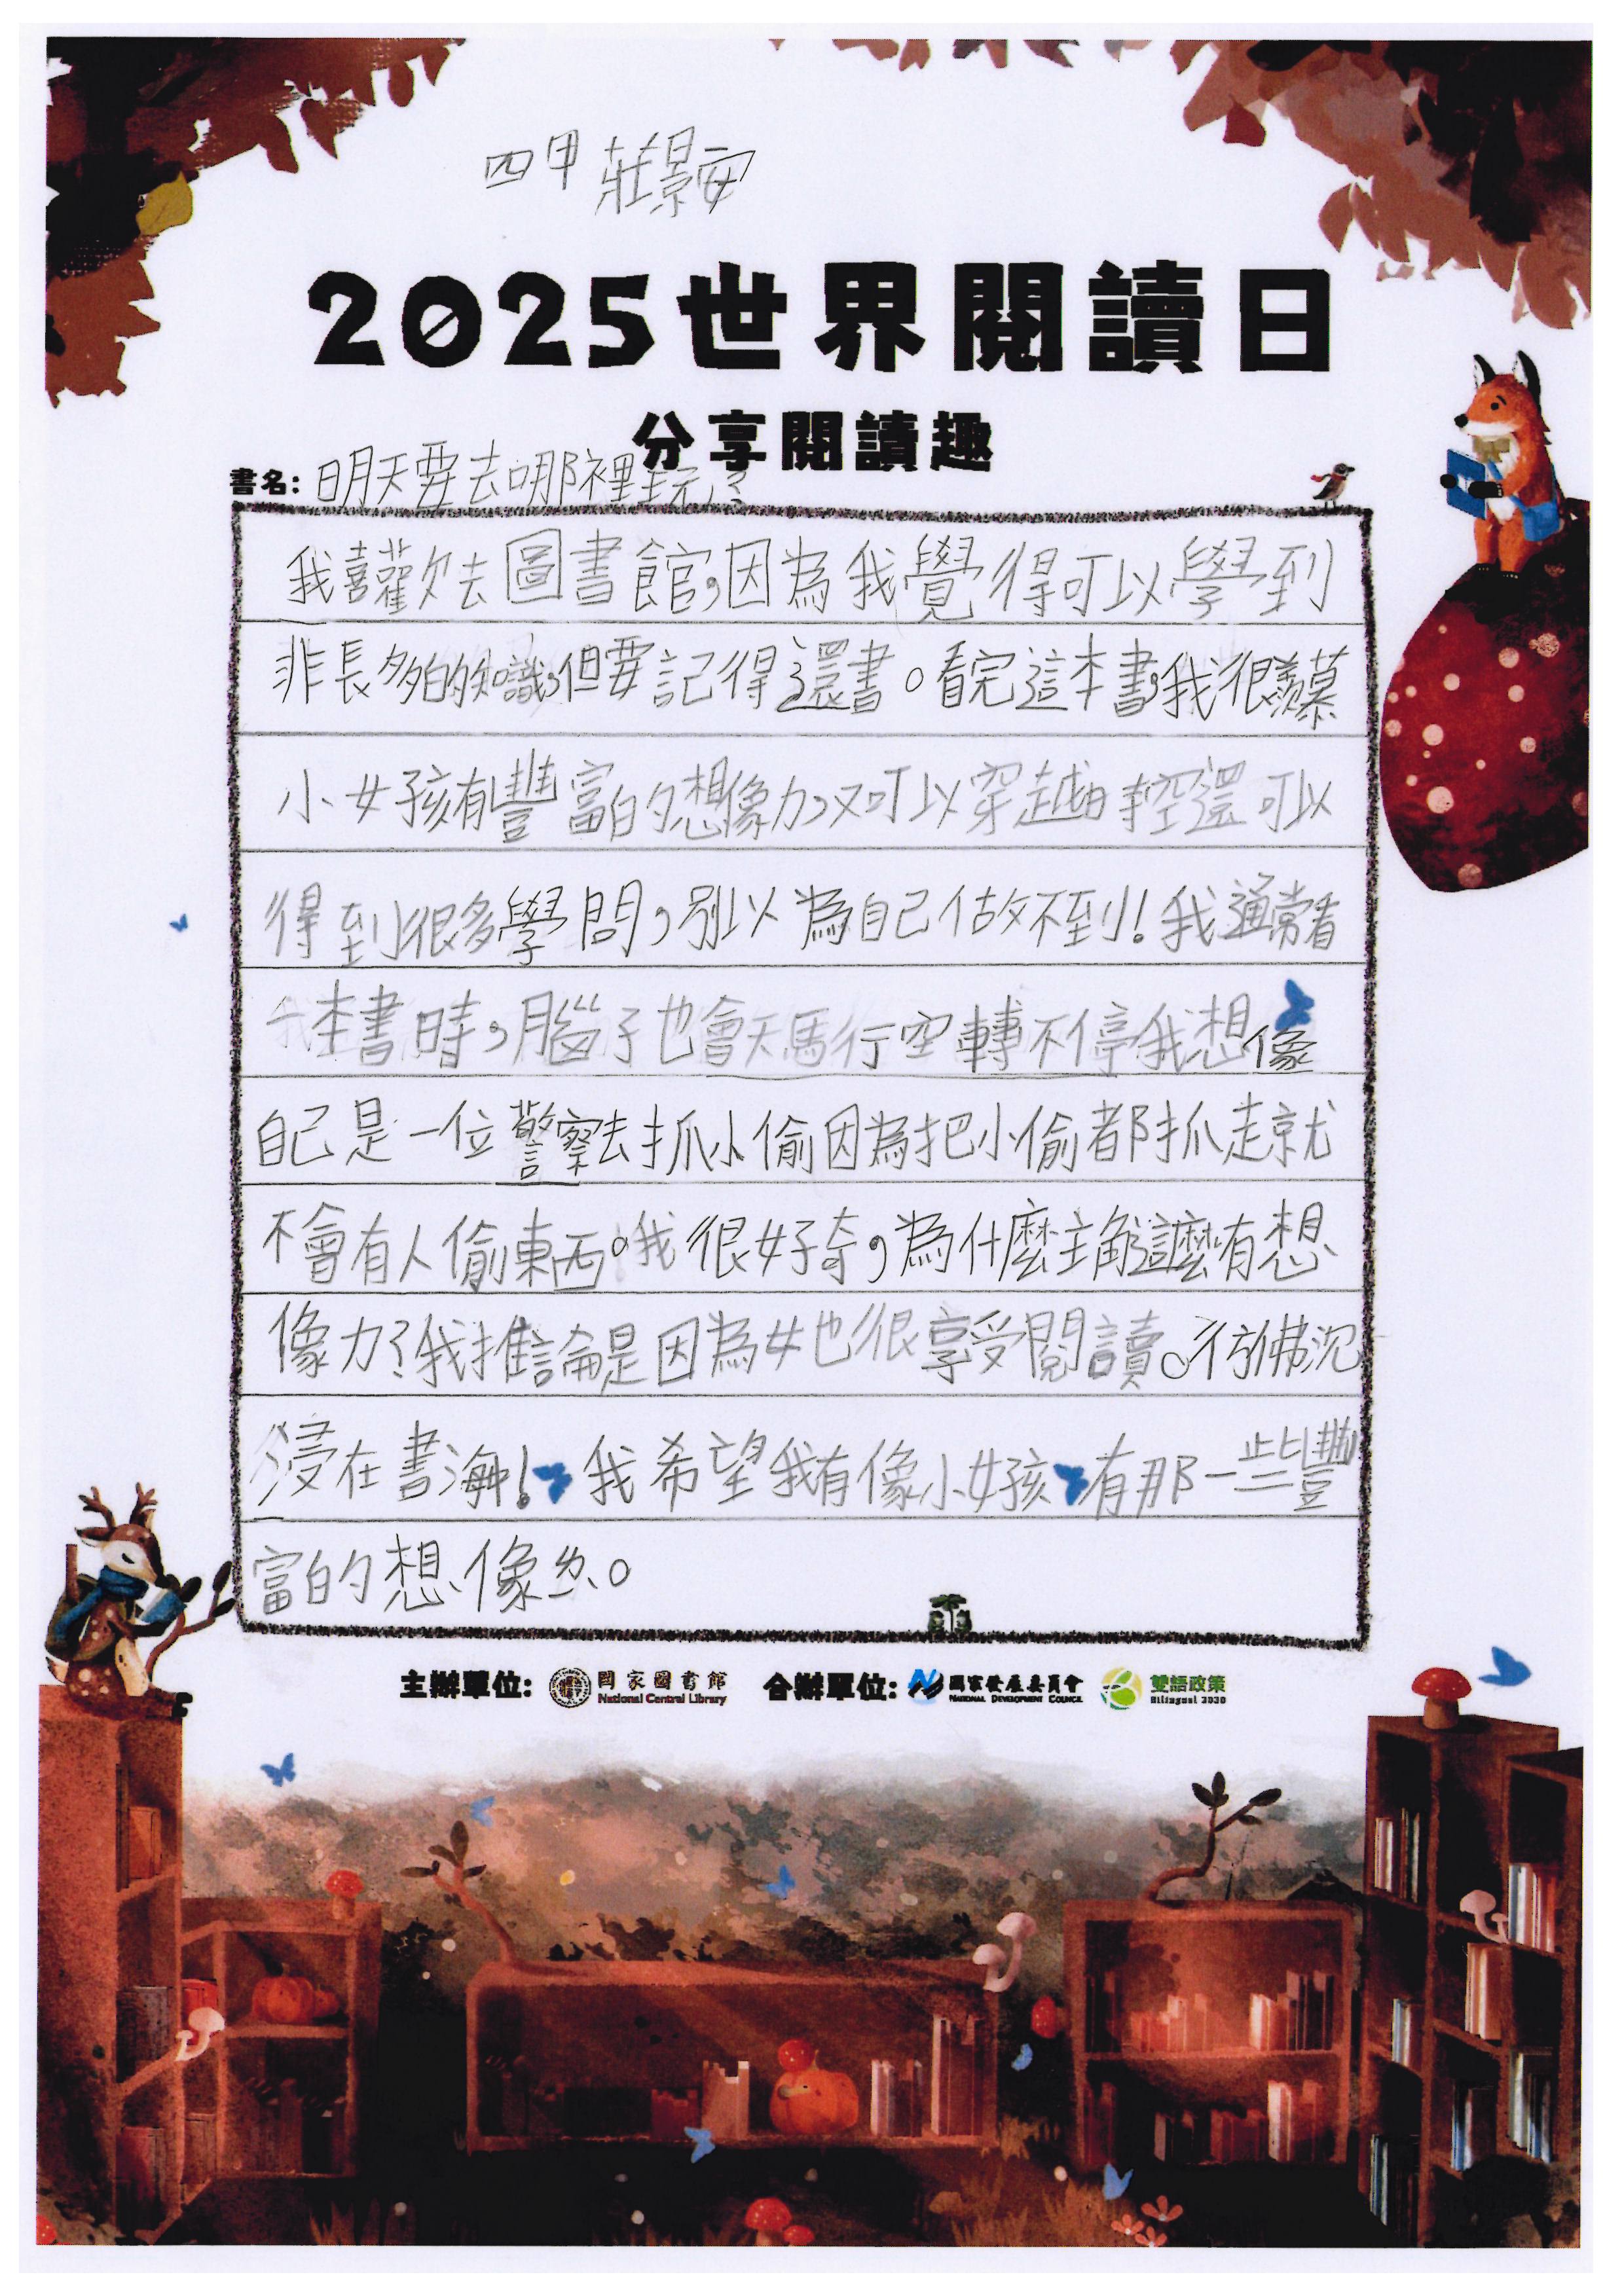 四甲 莊景安
2025世界閱讀日
分享閱讀趣
書名: 明天要去哪裡玩?
我喜歡去圖書館,因為我覺得可以學到
非長多的知識,但要記得還書。看完這本書,我很羨慕
小女孩有豐富的想像力,又可以穿越時空還可以
得到很多學問,別以為自己做不到!我通常看
一本書時,腦子也會天馬行空轉不停我想像
自己是一位警察去抓小偷因為把小偷都抓走就
不會有人偷東西。我很好奇,為什麼主角這麼有想
像力?我推論是因為她很享受閱讀。彷彿沉
浸在書海!我希望我有像小女孩有那一些豐
富的想像力。
主辦單位: 國家圖書館 National Central Library 合辦單位: 國家發展委員會 National Development Council 雙語政策 Bilingual 2030